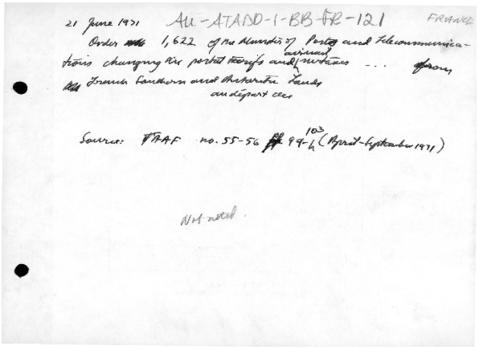 21 June 1971 AU-ATADD-1-BB-FR-121 FRANCE
Order 1,622 of the Minister of Posts and Telecommunica-
tions changing the postal tariffs and airmail surtaxes ... from
French Southern and Antarctic Lands
au départ des
Source: TAAF no. 55-56 99-103 (April-September 1971)
Not noted.